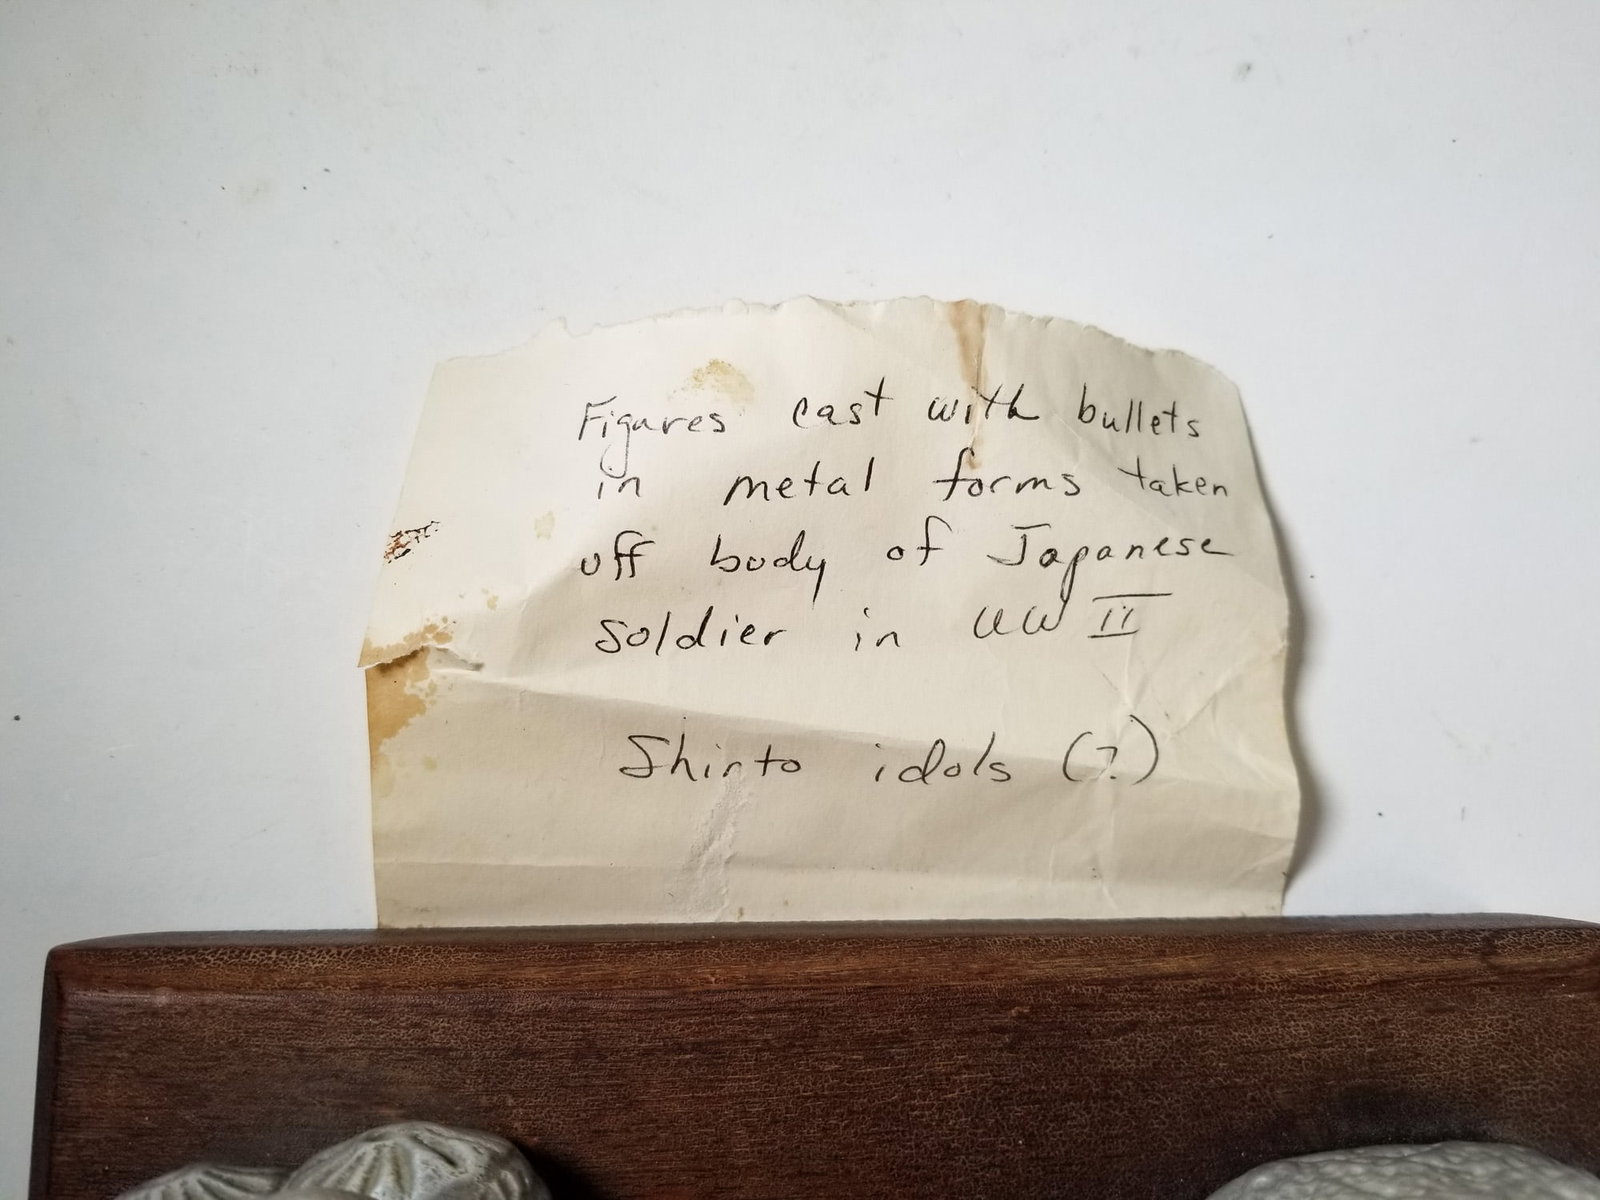 Figures cast with bullets
in metal forms taken
off body of Japanese
soldier in WW II
Shinto idols (?)